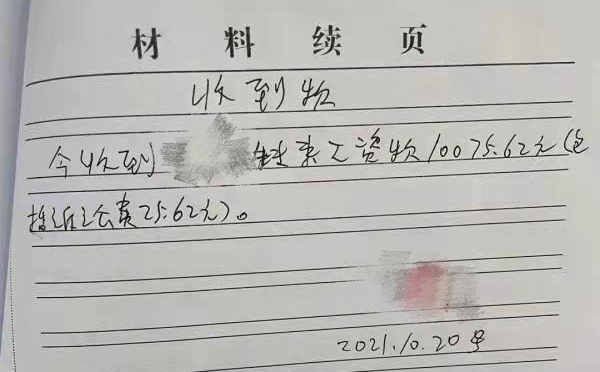 材料续页
收到款
今收到 转来工资款10075.62元(包
括诉讼费25.62元)。
2021.10.20号